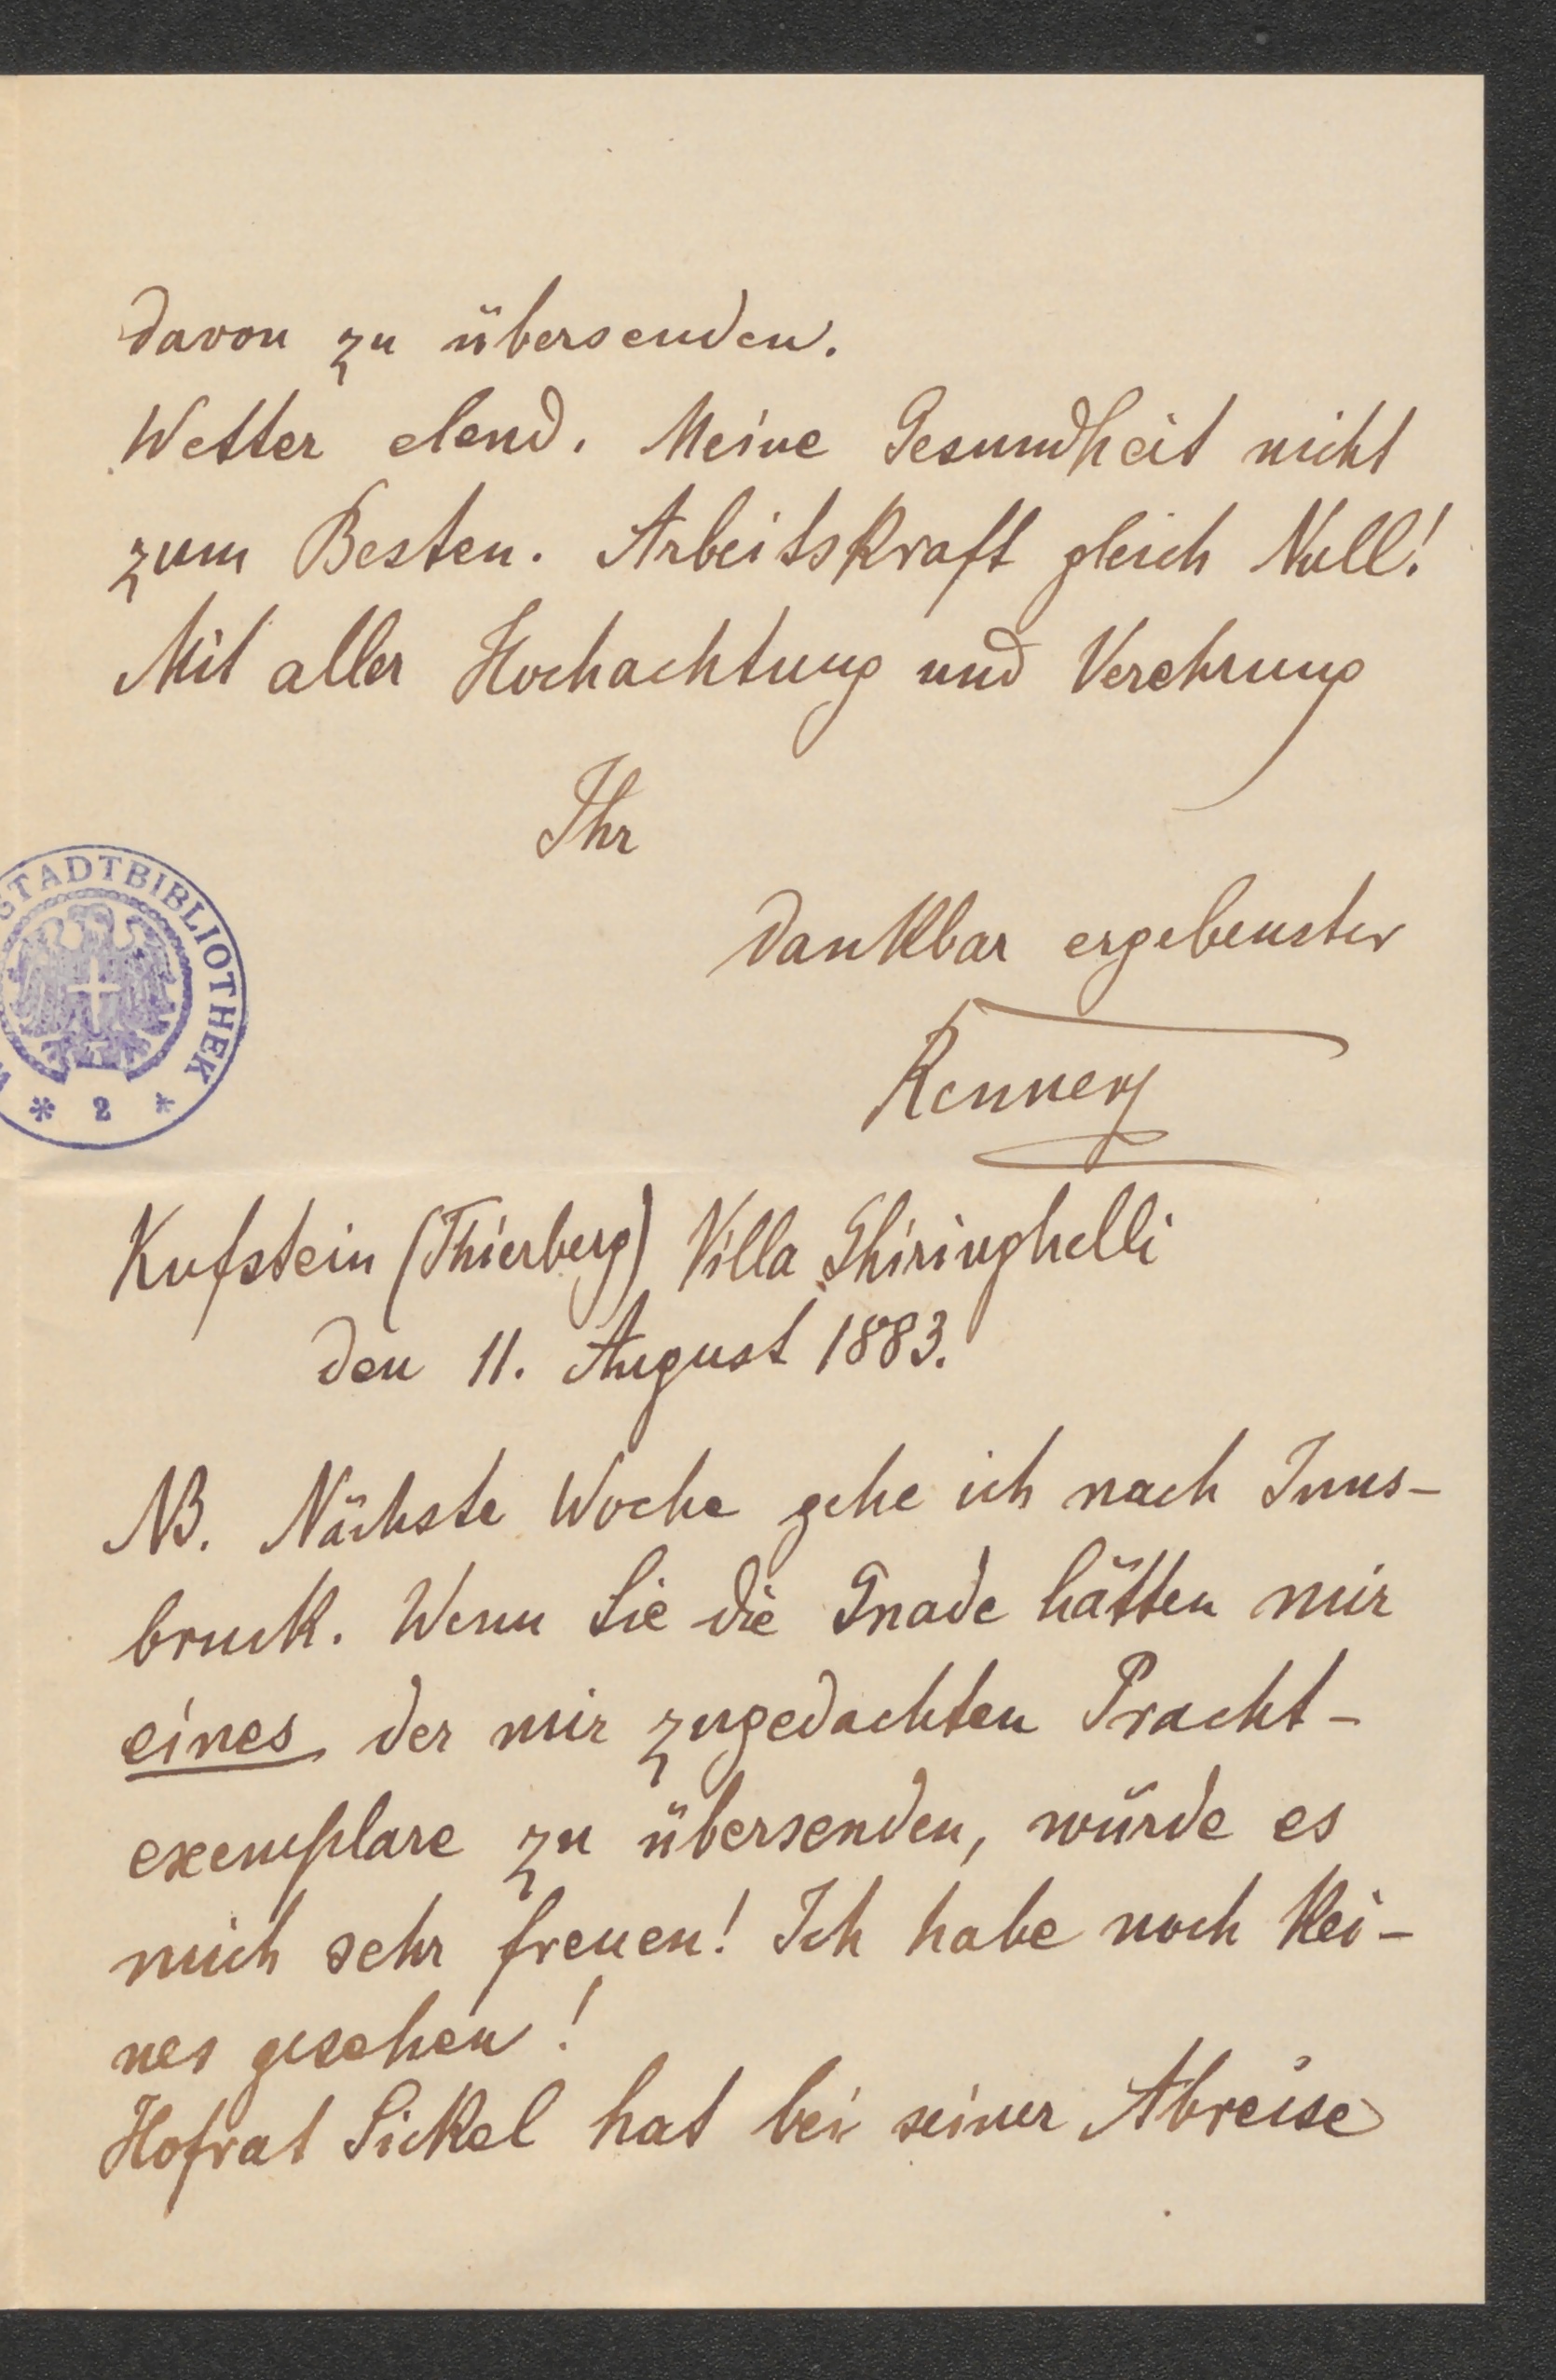 davon zu übersenden.
Wetter elend. Meine Gesundheit nicht
zum Besten. Arbeitskraft gleich Null!
Mit aller Hochachtung und Verehrung
Ihr
dankbar ergebenster
Kenner
STADTBIBLIOTHEK
* 2 *
Kufstein (Thierberg) Villa Ghiringhelli
den 11. August 1883.
NB. Nächste Woche gehe ich nach Inns-
bruck. Wenn Sie die Gnade hätten mir
eines der mir zugedachten Pracht-
exemplare zu übersenden, würde es
mich sehr freuen! Ich habe noch kei-
nes gesehen!
Hofrat Sickel hat bei seiner Abreise